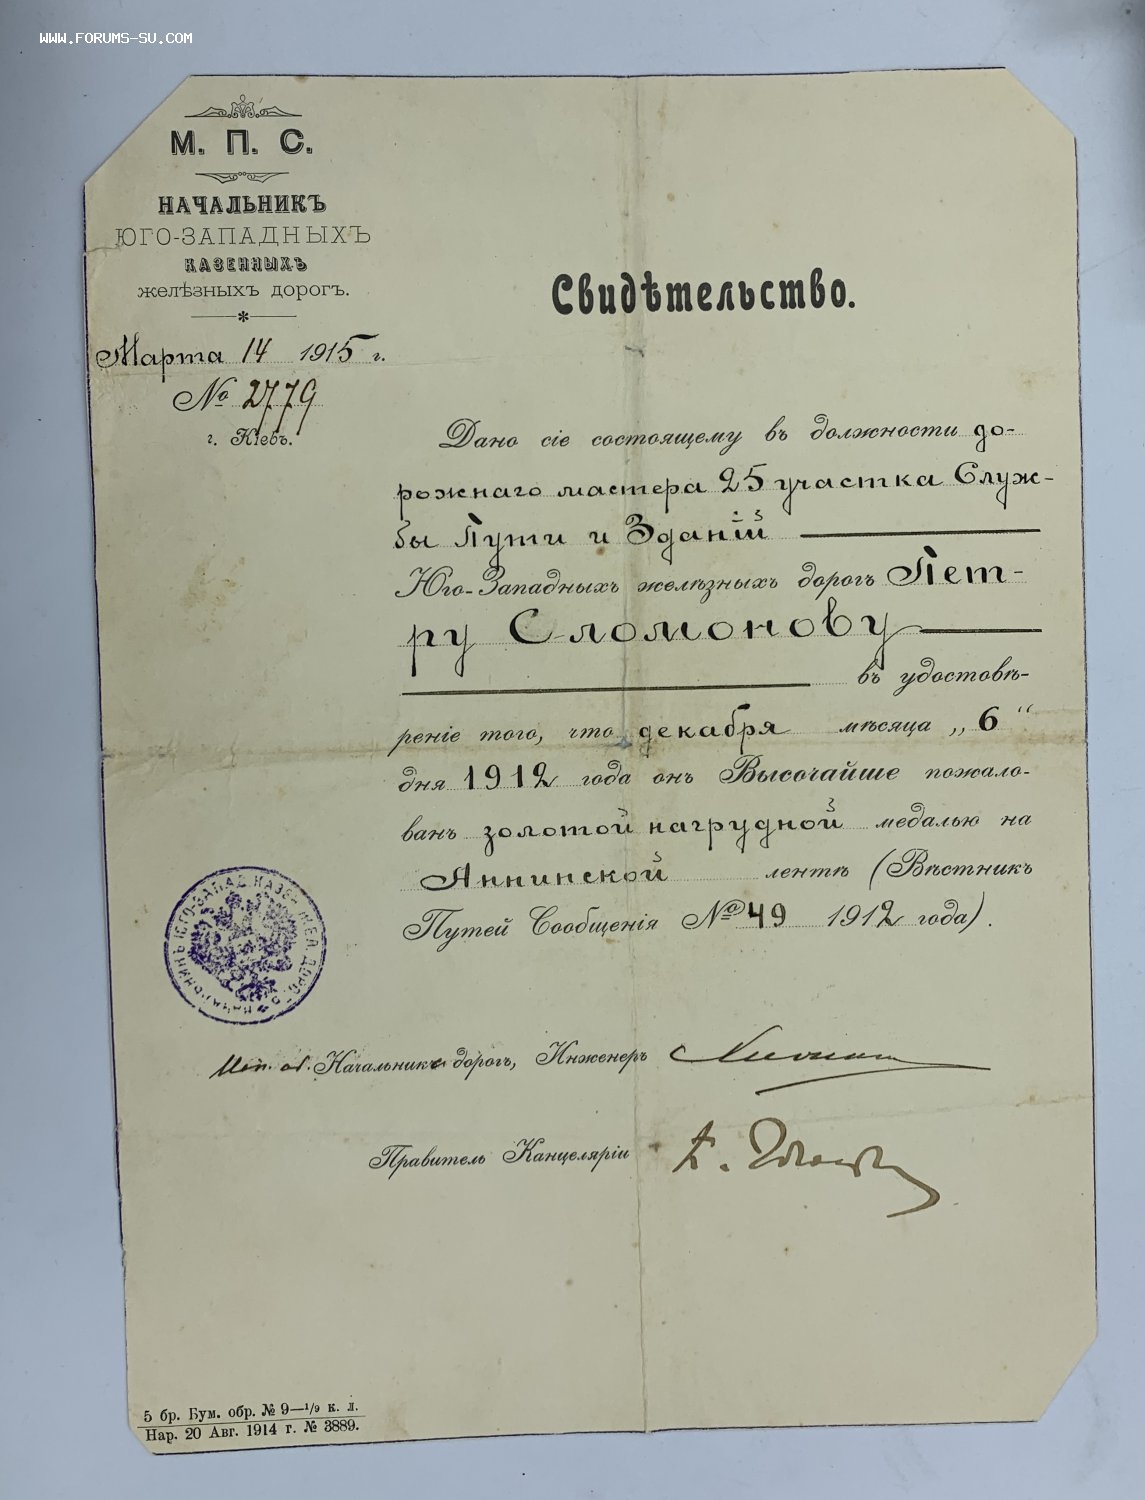 WWW.FORUMS-SU.COM
М. П. С.
НАЧАЛЬНИКЪ
ЮГО-ЗАПАДНЫХЪ
КАЗЕННЫХЪ
желѣзныхъ дорогъ.
Марта 14 1915 г.
№ 2779
г. Кіевъ.
Свидѣтельство.
Дано сіе состоящему въ должности до-
рожнаго мастера 25 участка Служ-
бы Пути и Зданій
Юго-Западныхъ желѣзныхъ дорогъ Пет-
ру Сломонову
въ удостовѣ-
реніе того, что декабря мѣсяца „6“
дня 1912 года онъ Высочайше пожало-
ванъ золотой нагрудной медалью на
Аннинской лентѣ (Вѣстникъ
Путей Сообщенія № 49 1912 года).
НАЧАЛЬНИКЪ ЮГО-ЗАПАД. КАЗЕН. ЖЕЛ. ДОРОГЪ
Исп. об. Начальника дорогъ, Инженеръ
Правитель Канцеляріи
5 бр. Бум. обр. № 9—1/9 к. л.
Нар. 20 Авг. 1914 г. № 3889.